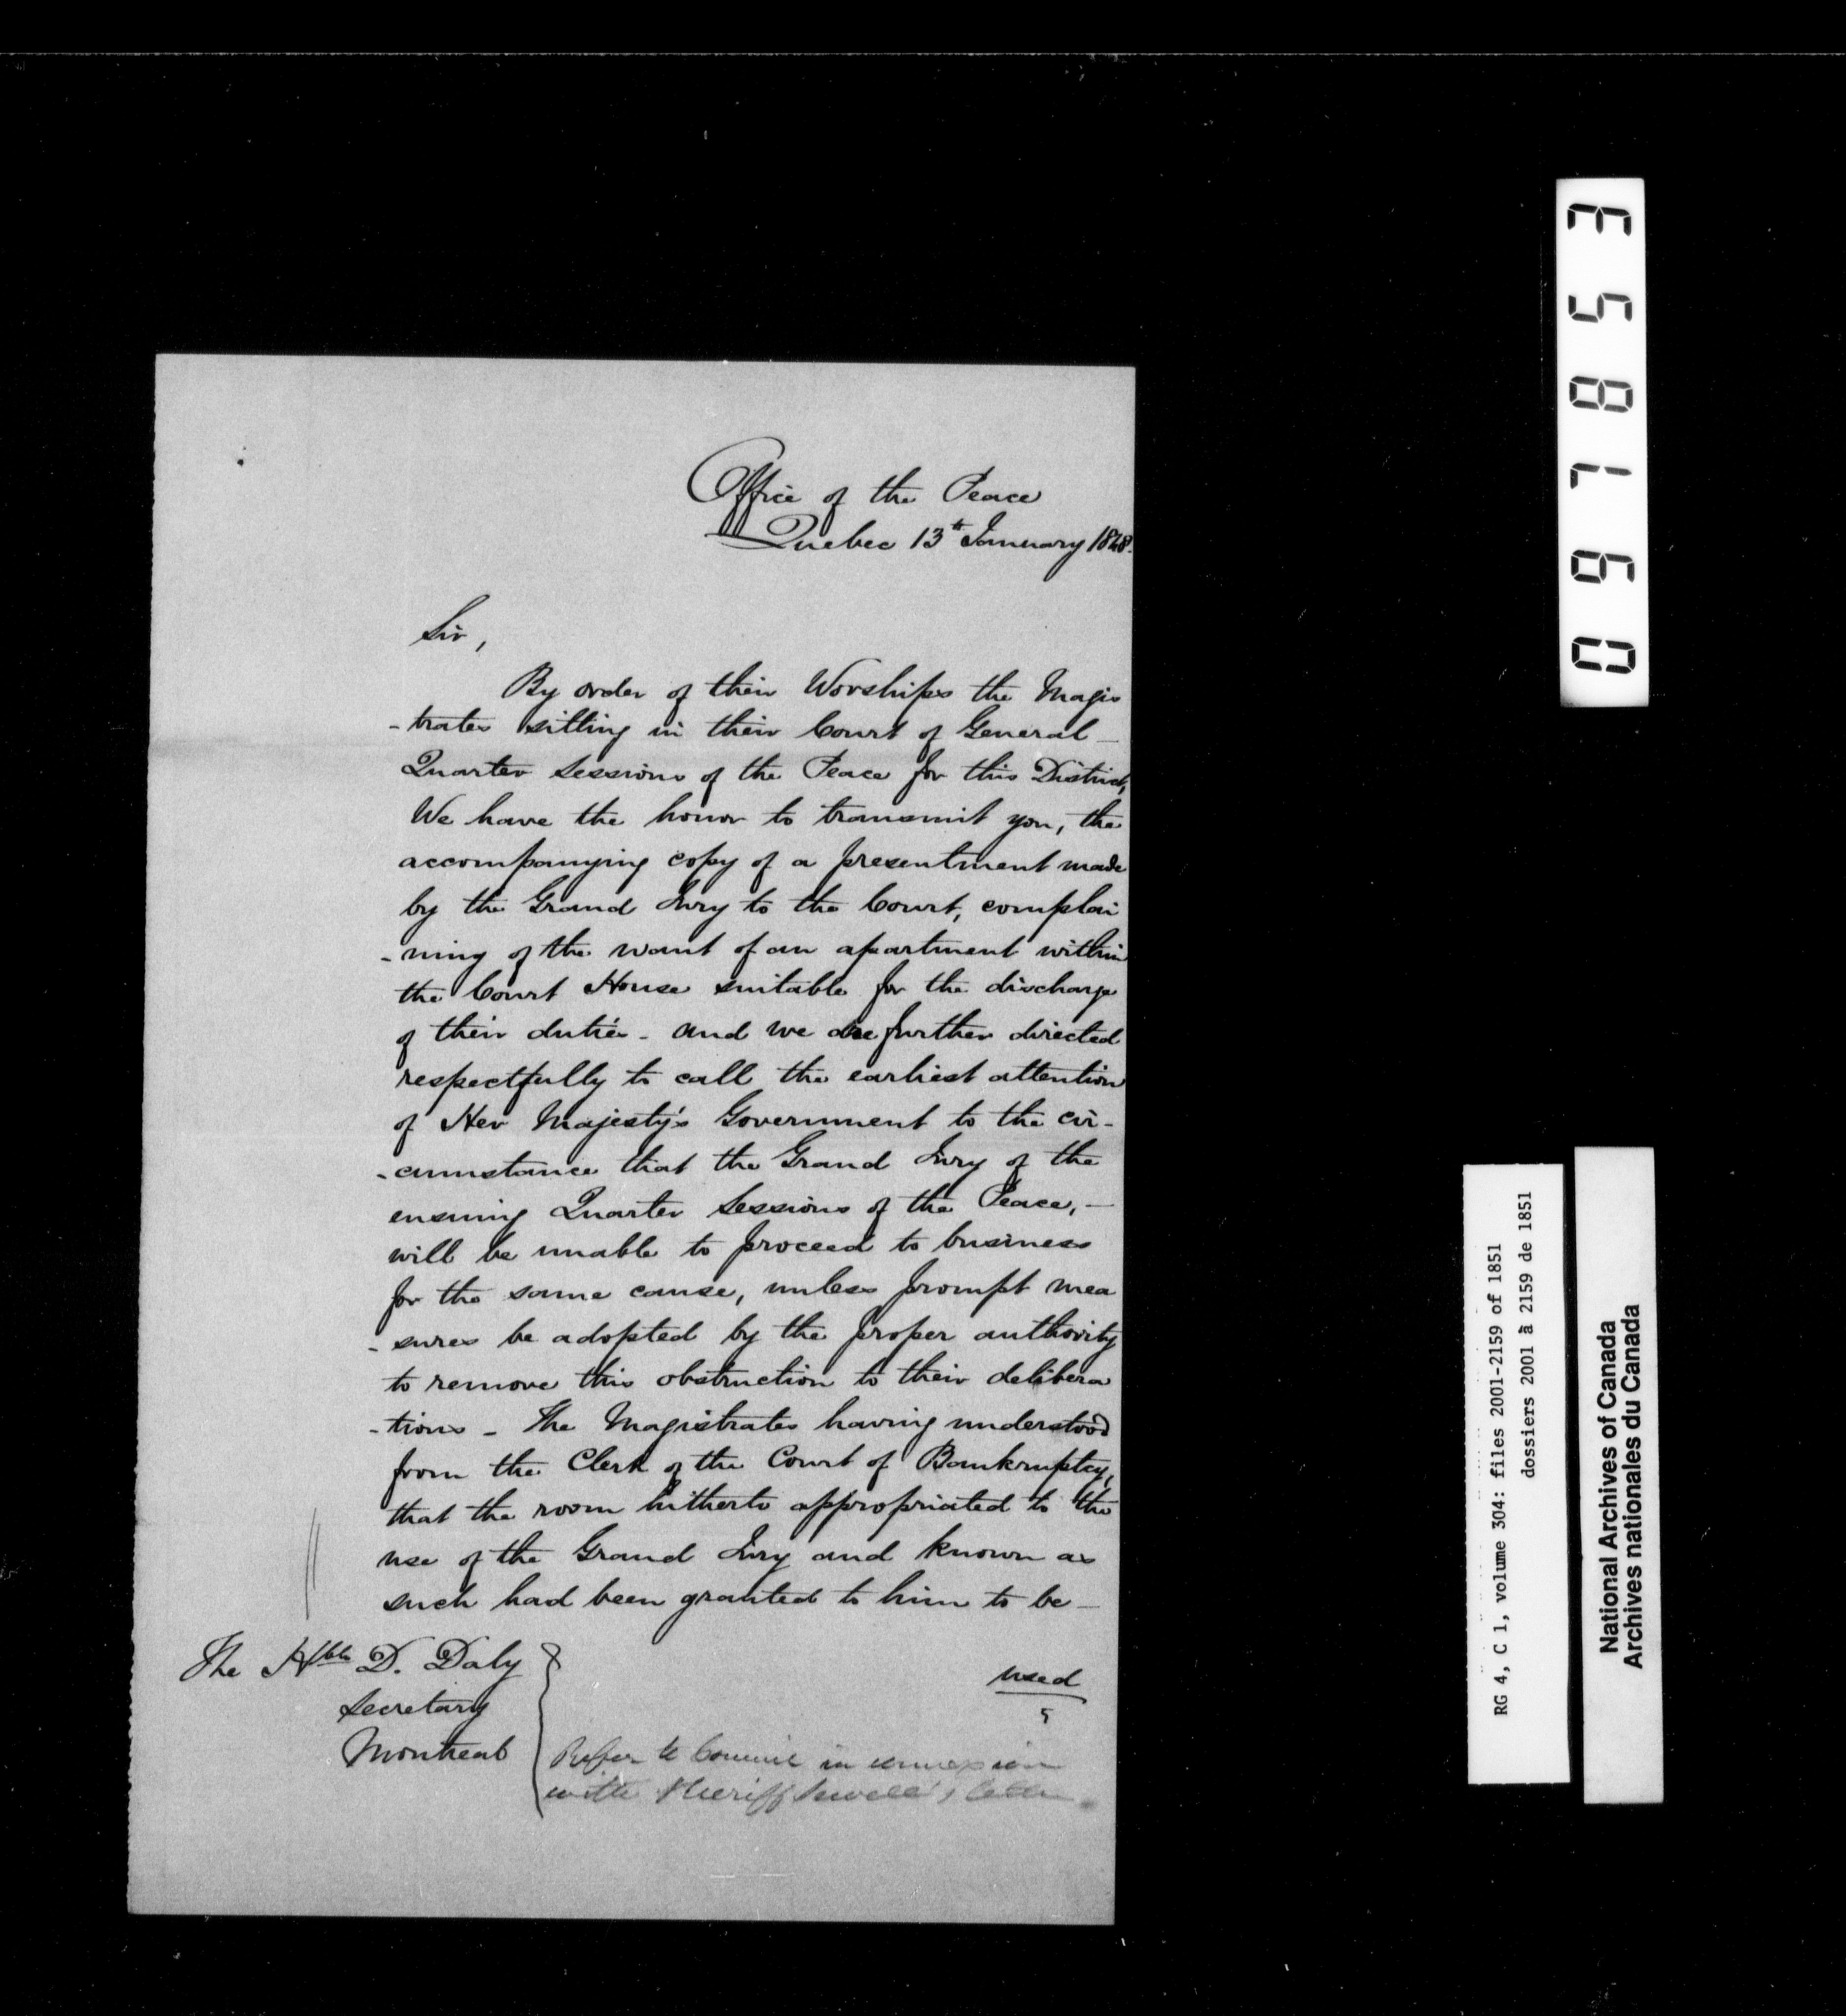 Office of the Peace
Quebec 13th January 1848.
Sir,
By order of their Worships the Magis
-trates sitting in their Court of General
Quarter Sessions of the Peace for this District,
We have the honor to transmit you, the
accompanying copy of a presentment made
by the Grand Jury to the Court, complai
-ning of the want of an apartment within
the Court House suitable for the discharge
of their duties - and we are further directed
respectfully to call the earliest attention
of Her Majesty's Government to the cir-
-cumstance that the Grand Jury of the
ensuing Quarter Sessions of the Peace, -
will be unable to proceed to business
for the same cause, unless prompt mea
-sures be adopted by the proper authority
to remove this obstruction to their delibera
-tions - The Magistrates having understood
from the Clerk of the Court of Bankruptcy,
that the room hitherto appropriated to the
use of the Grand Jury and known as
such had been granted to him to be -
used
The Hble D. Daly
Secretary
Montreal
Refer to Council in connexion
with Sheriff Sewell's letter
0671853
RG 4, C 1, volume 304: files 2001-2159 of 1851
dossiers 2001 à 2159 de 1851
National Archives of Canada
Archives nationales du Canada